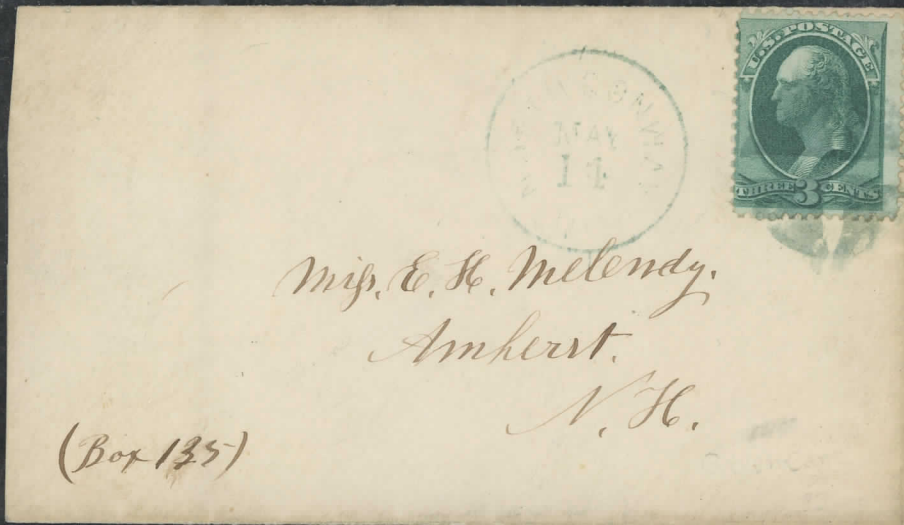 U.S. POSTAGE
THREE 3 CENTS
NORTH CONWAY
MAY
14
Miss. E. H. Melendy.
Amherst.
N. H.
(Box 135)